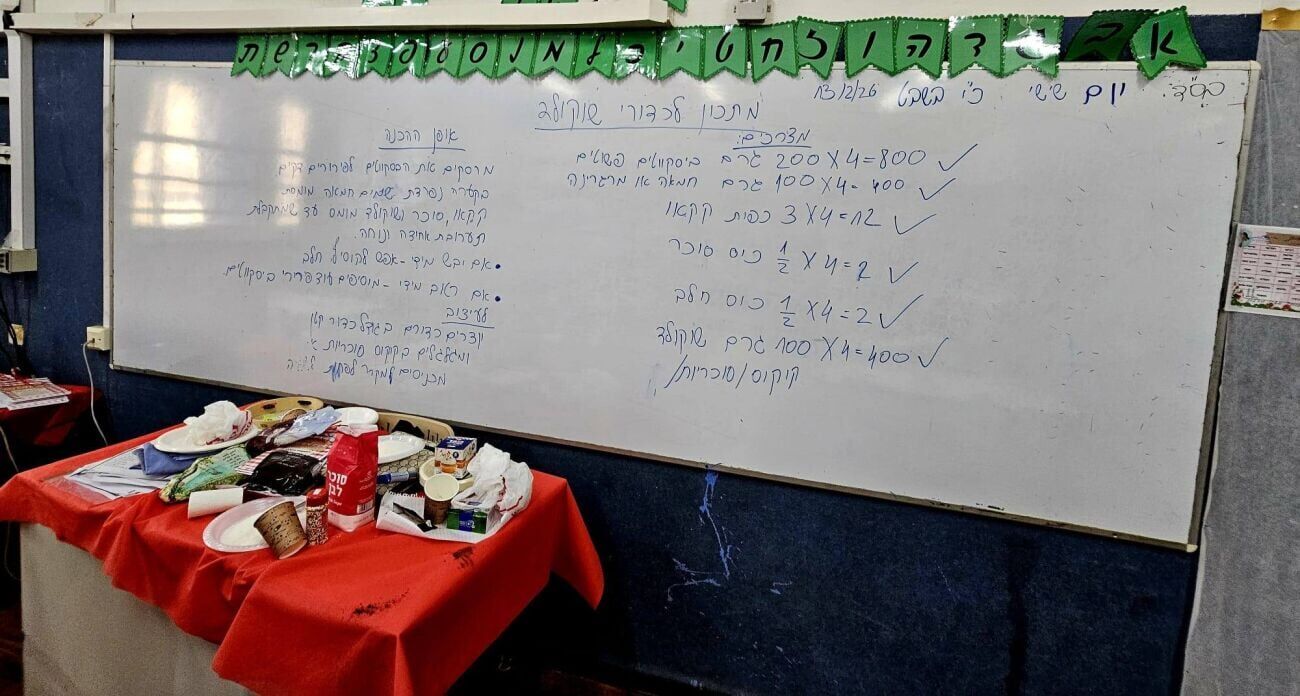 א ב ג ד ה ו ז ח ט י כ ל מ נ ס ע פ צ ק ר ש ת
בס"ד. יום שישי כ"ו בשבט 13/2/26
מתכון לכדורי שוקולד
מצרכים:
200 גרם ביסקוויטים פשוטים X4=800 ✓
100 גרם חמאה או מרגרינה X4=400 ✓
3 כפית קקאו X4=12 ✓
1/2 כוס סוכר X4=2 ✓
1/2 כוס חלב X4=2 ✓
100 גרם שוקולד X4=400 ✓
קוקוס/סוכריות/
אופן ההכנה
מרסקים את הבסקווטים לפירורים דקים
בקערה נפרדת שמים חמאה מומסת
קקאו, סוכר ושוקולד מומס עד שמתקבלת
תערובת אחידה ונוחה.
•אם יבש מידי - אפש להוסיף חלב
•אם רטוב מידי - מוסיפים עוד פרורי ביסקווטים
לעיצוב
יוצרים כדורים בגודל כדור קטן
ומגלגלים בקוקוס סוכריות
מכניסים למקרר לפחות
סוכר
לבן